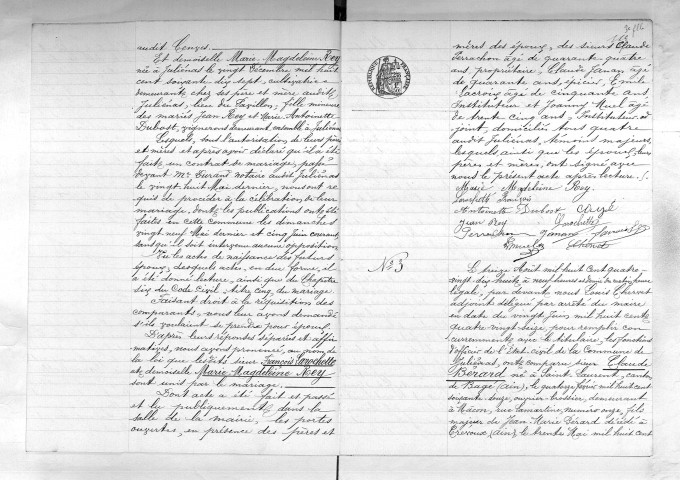 audit Corges.
Et demoiselle Marie Magdeleine Rey
née à Juliénas le vingt Décembre mil huit
cent soixante dix sept, cultivatrice
demeurant chez ses père et mère audit
Juliénas, lieu de Vavillon, fille mineure
des mariés Jean Rey et Marie Antoinette
Dubost, vignerons demeurant ensemble à Juliénas
Lesquels, sous l'autorisation de leurs pères
et mères et après avoir déclaré qu'il a été
fait un contrat de mariage, passé
devant Me Durand notaire audit Juliénas
le vingt huit Mai dernier, nous ont re
quis de procéder à la célébration de leur
mariage, dont les publications ont été
faites en cette commune les dimanches
vingt neuf Mai dernier et cinq Juin courant,
sans qu'il soit intervenu aucune opposition.
Vu les actes de naissance des futurs
époux, desquels acte, en due forme, il
a été donné lecture, ainsi que du Chapitre
six du Code Civil, titre cinq du mariage.
Faisant droit à la réquisition des
comparants, nous leur avons demandé
s'ils voulaient se prendre pour époux.
D'après leurs réponses séparées et affir
matives, nous avons prononcé, au nom de
la loi que le sieur François Larochette
et demoiselle Marie Magdeleine Rey
sont unis par le mariage.
Dont acte a été fait et passé
et lu publiquement dans la
salle de la mairie, les portes
ouvertes, en présence des pères et
mères des époux, des sieurs Claude
Perrachon âgé de quarante quatre
ans propriétaire, Claude Janan âgé
de quarante ans épicier, Emile
Lacroix âgé de cinquante ans
Instituteur et Joanny Muel âgé
de trente cinq ans, Instituteur ad
joint, domiciliés tous quatre
audit Juliénas, témoins majeurs,
lesquels ainsi que les époux, leurs
pères et mères, ont signé avec
nous le présent acte après lecture.
Marie Madeleine Rey.
Larochette François
Antoinette Dubost
Jean Rey Larochette
Perrachon Janan
Chervet
No 3
Le treize Août mil huit cent quatre
vingt dix huit, à neuf heures et demie du matin, heure
légale, par devant nous Louis Chervet
adjoint délégué par arrêté du maire
en date du vingt Juin mil huit cent
quatre vingt seize, pour remplir con
curremment avec le titulaire, les fonctions
d'officier de l'état civil de la Commune de
Juliénas, ont comparu Claude
Bérard né à Saint Laurent, canton
de Bagé (ain), le quatorze Février mil huit cent
soixante onze, ouvrier brossier, demeurant
à Mâcon, rue Lamartine, numéro onze, fils
majeur de Jean Marie Bérard décédé à
Crévoux (ain) le trente Mai mil huit cent